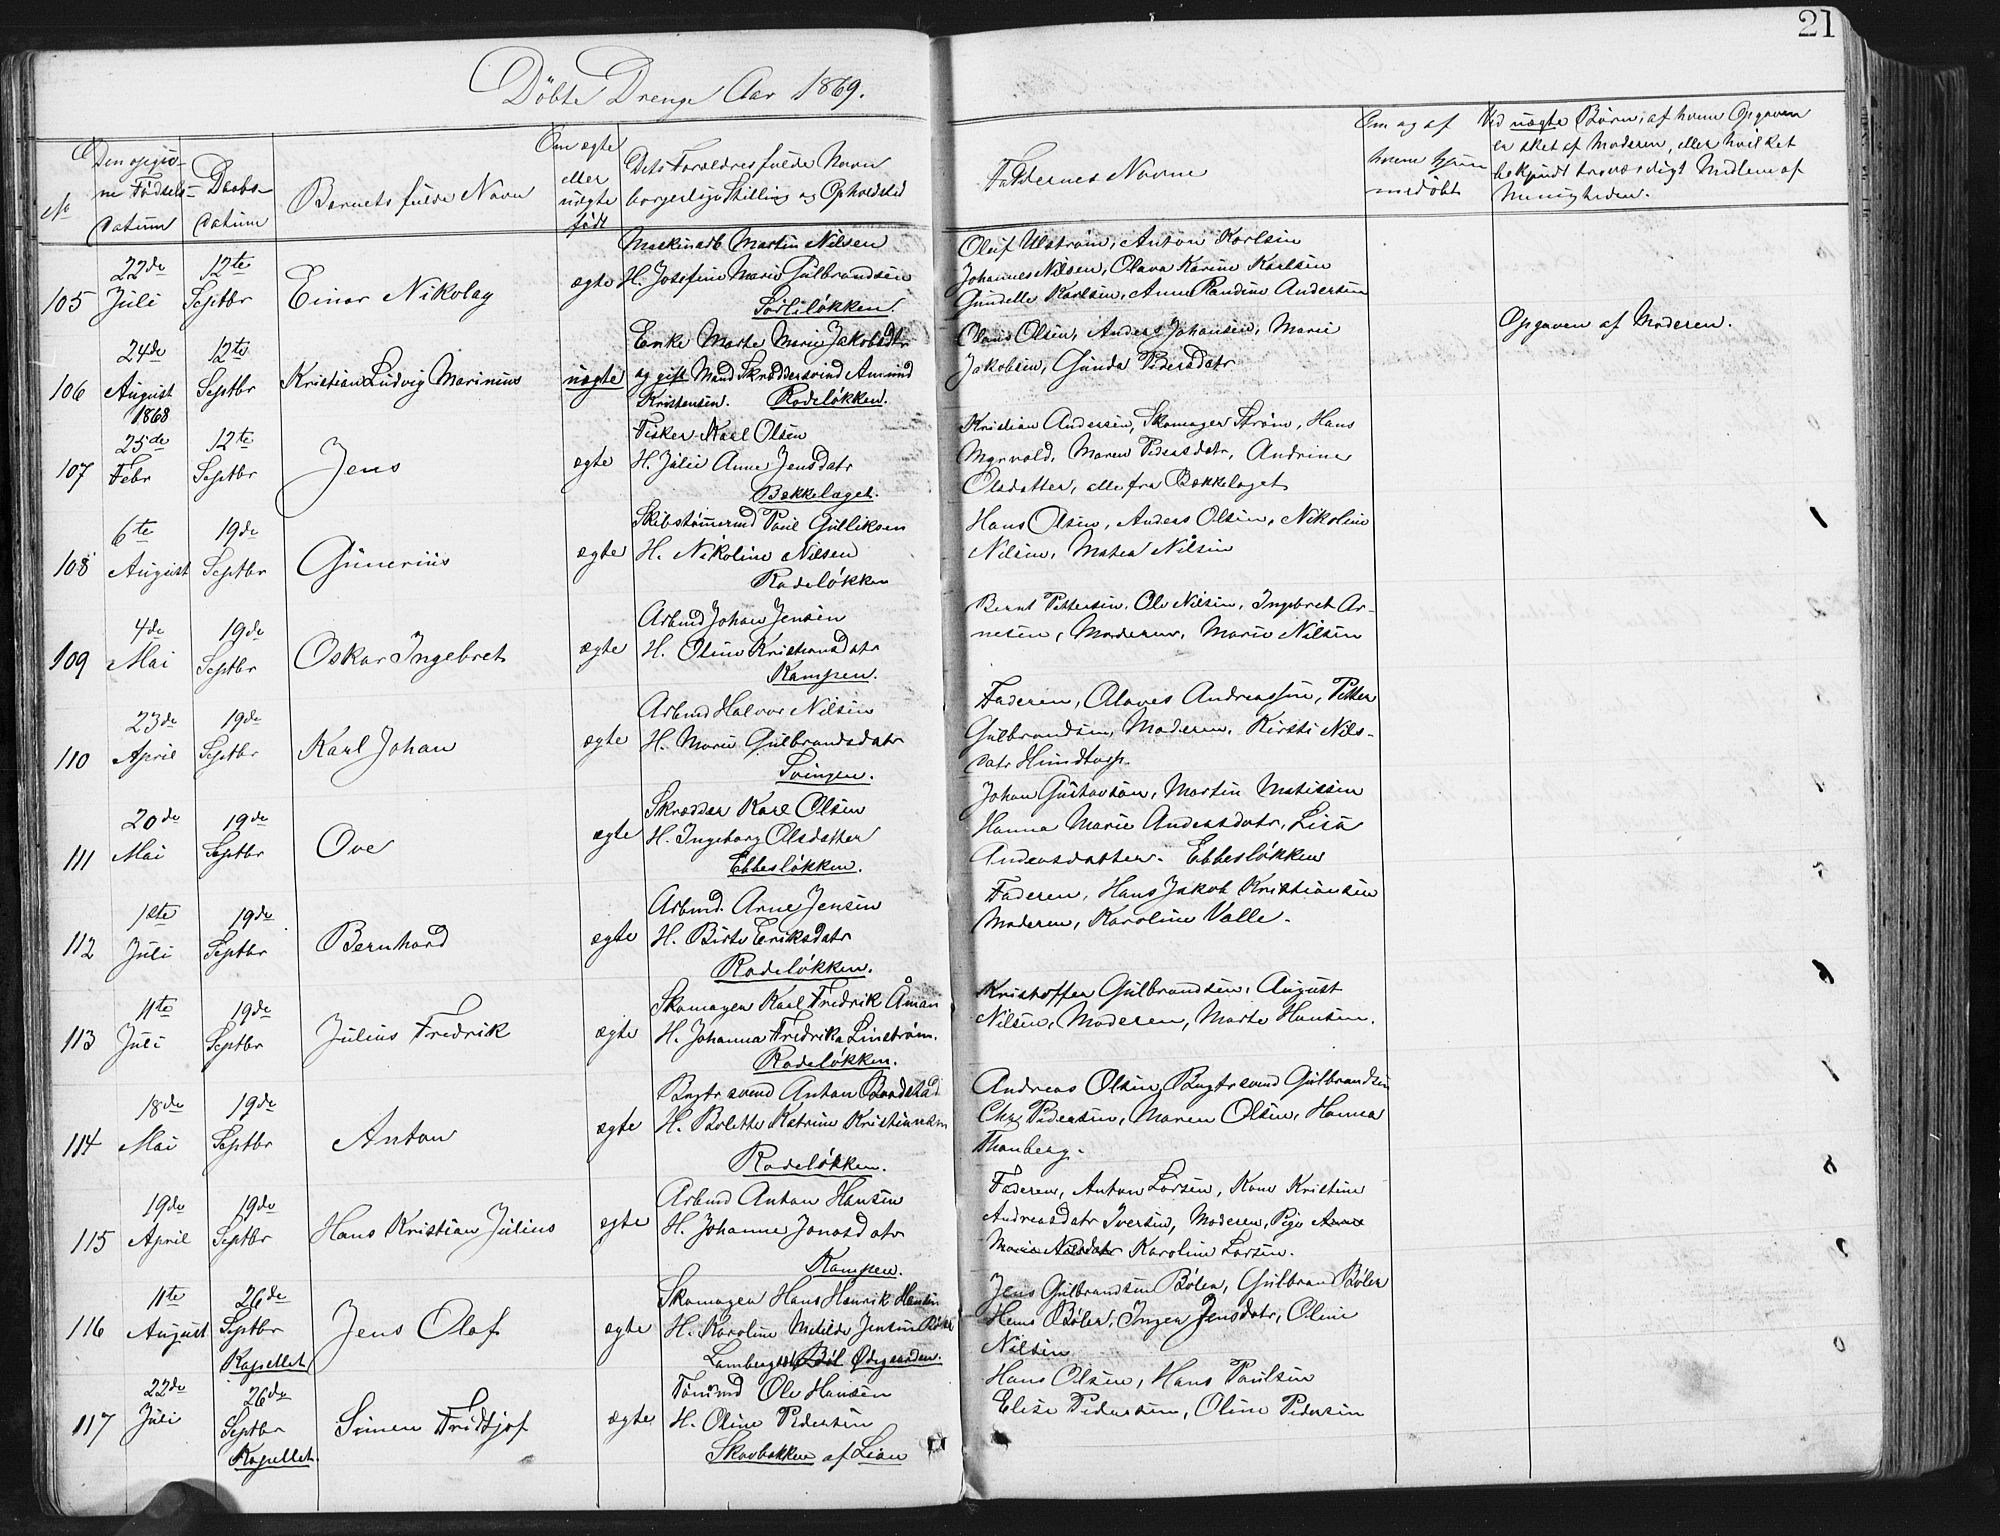 21
Döbte Drenge Aar 1869.
No
Den opgiv-
ne Födsels-
datum
Daabs-
datum
Barnets fulde Navn
Om ægte
eller
uægte
födt
Dets Forældres fulde Navn
borgerlige Stilling og Opholdsted
Faddernes Navne
Om og af
hvem hjem-
medøbt
Ved uægte Börn; af hvem Opgaven
er sket af Moderen, eller hvilket
bekjendt troværdigt Medlem af
Menigheden.
105
22de Juli
12te Septbr
Einar Nikolay
ægte
Maskinarb Martin Nilsen
H. Josefine Marie Gulbrandsen
Sorliløkken.
Oluf Ulstrøm, Anton Karlsen
Johannes Nilsen, Olava Karine Karlsen
Gunelle Karlsen, Anne Randine Andersen
106
24de August 1868
12te Septbr
Kristian Ludvig Marinius
uægte
Enke Marte Marie Jakobsdtr
og gift Mand Skræddersvend Amund
Kristensen. Rodeløkken.
Olaus Olsen, Anders Johansen, Marie
Jakobsen, Gunda Pedersdatr
Opgaven af Moderen.
107
25de Febr
12te Septbr
Jens
ægte
Fisker Karl Olsen
H. Julie Anne Jensdatr
Bækkelaget.
Kristian Andersen, Skomager Strøm, Hans
Myrvold, Maren Pedersdatr, Andrine
Olsdatter, alle fra Bækkelaget
108
6te August
19de Septbr
Gunerius
ægte
Skibstømermd Paul Gulliksen
H. Nikoline Nilsen
Rodeløkken
Hans Olsen, Anders Olsen, Nikoline
Nilsen, Matea Nilsen
109
4de Mai
19de Septbr
Oskar Ingebret
ægte
Arbmd Johan Jensen
H. Oline Kristiansdatr
Kampen.
Bernt Pettersen, Ole Nilsen, Ingebret Ar-
nesen, Moderen, Marie Nilsen
110
23de April
19de Septbr
Karl Johan
ægte
Arbmd Halvor Nilsen
H. Marie Gulbrandsdatr
Svingen.
Faderen, Olaves Andreassen, Petter
Gulbrandsen, Moderen, Kirsti Nils-
datr Himdtorp.
111
20de Mai
19de Septbr
Ove
ægte
Skrædder Karl Olsen
H. Ingeborg Olsdatter
Ebbesløkken.
Johan Gustavson, Martin Matissen
Hanna Marie Andersdatr, Lisa
Andersdatter. Ebbesløkken
112
1ste Juli
19de Septbr
Bernhard
ægte
Arbmd. Arne Jensen
H. Birte Eriksdatr
Rodeløkken.
Faderen, Hans Jakob Kristiansen
Moderen, Karoline Valle.
113
11te Juli
19de Septbr
Julius Fredrik
ægte
Skomager Karl Fredrik Åman
H. Johanna Fredrika Linstrøm.
Rodeløkken.
Kristoffer Gulbrandsen, August
Nilsen, Moderen, Marte Hansen.
114
18de Mai
19de Septbr
Anton
ægte
Bugtrsvend Anton Bredstad
H. Bolette Katrine Kristiansen
Rodeløkken.
Andreas Olsen, Bugtrsvend Gulbrandsen
Chr Pedersen, Maren Olsen, Hanna
Thonberg.
115
19de April
19de Septbr
Hans Kristian Julius
ægte
Arbmd Anton Hansen
H. Johanne Jonasdatr
Kampen.
Faderen, Anton Larsen, Kone Kristine
Andreasdatr Iversen, Moderen, Pige Anne
Marie Nilsdatr Karoline Larsen.
116
11te August
26de Septbr
Kapellet
Jens Olaf
ægte
Skomager Hans Henrik Hansen
H. Karoline Matilde Jensen Bøler
Lambergs Bøl Ødegaarden.
Jens Gulbrandsen Bøler, Gulbrand Bøler
Hans Bøler, Inger Jensdatr, Oline
Nilsen
117
22de Juli
26de Septbr
Kapellet.
Simen Fridtjof
ægte
Tømmd Ole Hansen
H. Oline Pedersen
Skovbakken af Lian
Hans Olsen, Hans Paulsen
Elise Pedersen, Oline Pedersen